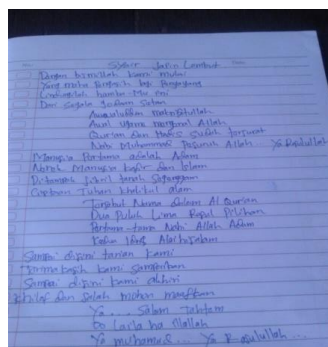 Syair Jarin Lembut
Dengan bismillah kami mulai
Yang maha Pengasih lagi Penyayang
Lindungilah hamba-Mu ini
Dari segala godaan Setan
Awaluddin
Awal agama mengenal Allah
Qur'an dan Hadis sudah
Nabi Muhammad Pesuruh Allah Ya Rasulullah
Manusia Pertama adalah Adam
Manusia kafir dan Islam
tanah
Ciptaan Tuhan khalikul alam
Tersebut Nama dalam Al Qur'an
Dua Puluh Lima Rasul Pilihan
Pertama-tama Nabi Allah Adam
Kedua Idris Alaihissalam
Sampai disini tarian kami
Terima kasih kami sampaikan
Sampai disini kami akhiri
Khilaf dan salah mohon maafkan
Ya .... Salam
Laila ha illallah
Ya muhamad ... Ya Rasulullah ...